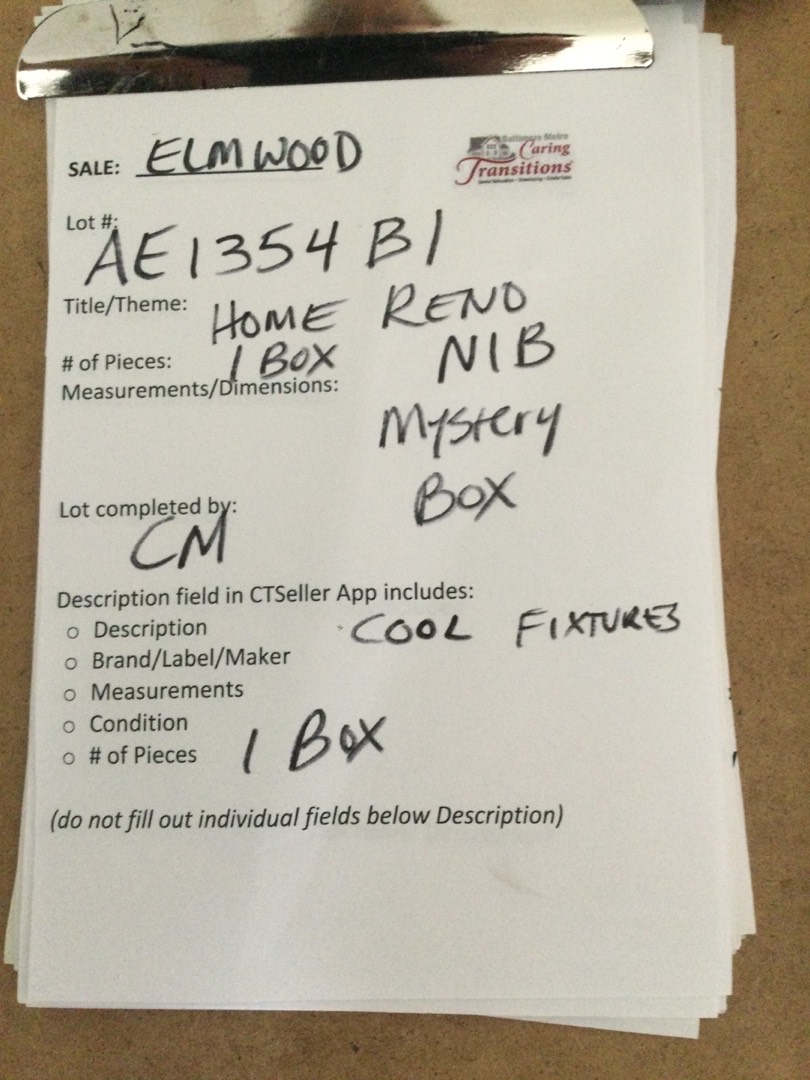 SALE: ELMWOOD
Baltimore Metro
Caring
Transitions
Lot #:
AE1354 B1
Title/Theme: HOME RENO
# of Pieces: 1 BOX NIB
Measurements/Dimensions:
Mystery
BOX
Lot completed by:
CM
Description field in CTSeller App includes:
o Description COOL FIXTURES
o Brand/Label/Maker
o Measurements
o Condition
o # of Pieces 1 BOX
(do not fill out individual fields below Description)